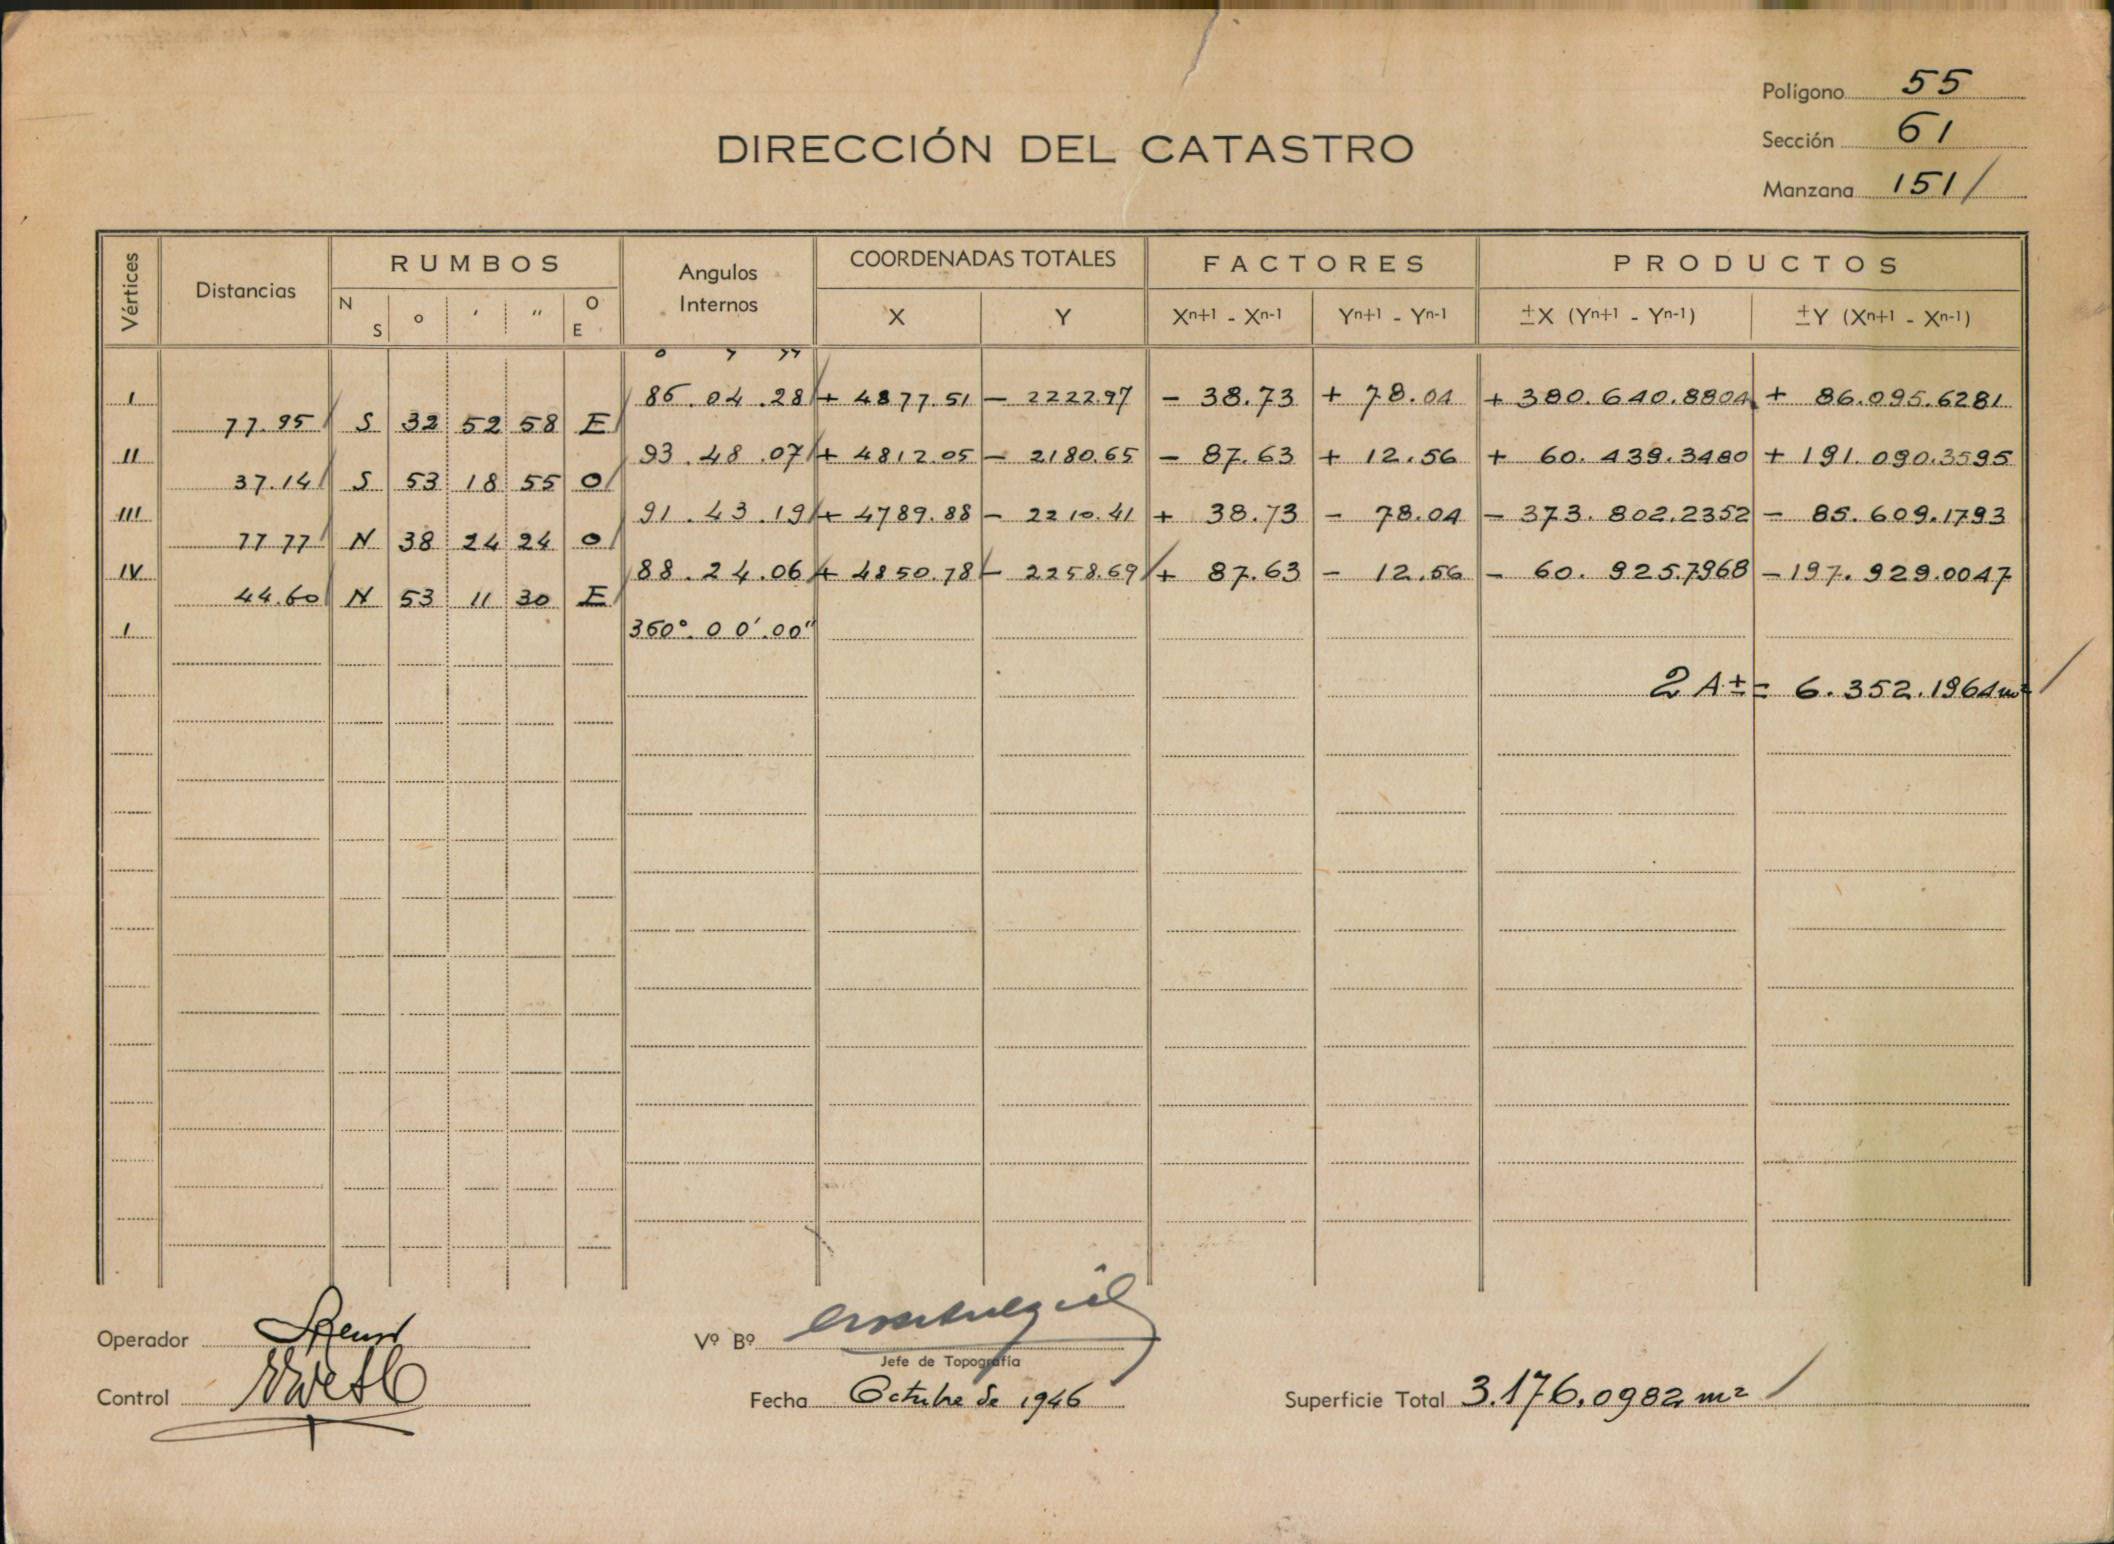 Polígono 55
Sección 61
Manzana 151/
DIRECCIÓN DEL CATASTRO
Vértices Distancias RUMBOS Angulos Internos COORDENADAS TOTALES FACTORES PRODUCTOS
N S o ′ ″ O E X Y Xn+1 - Xn-1 Yn+1 - Yn-1 ±X (Yn+1 - Yn-1) ±Y (Xn+1 - Xn-1)
° ′ ″
I 86.04.28 + 4877.51 - 2222.97 - 38.73 + 78.04 + 380.640.8804 + 86.095.6281
77.95 S 32 52 58 E
II 93.48.07 + 4812.05 - 2180.65 - 87.63 + 12.56 + 60.439.3480 + 191.090.3595
37.14 S 53 18 55 O
III 91.43.19 + 4789.88 - 2210.41 + 38.73 - 78.04 - 373.802.2352 - 85.609.1793
77.77 N 38 24 24 O
IV 88.24.06 + 4850.78 - 2258.69 + 87.63 - 12.56 - 60.925.7968 - 197.929.0047
44.60 N 53 11 30 E
I 360°.00′.00″
2 A ± = 6.352.1964 m²
Operador
Vº Bº
Jefe de Topografía
Control
Fecha Octubre de 1946
Superficie Total 3.176.0982 m²